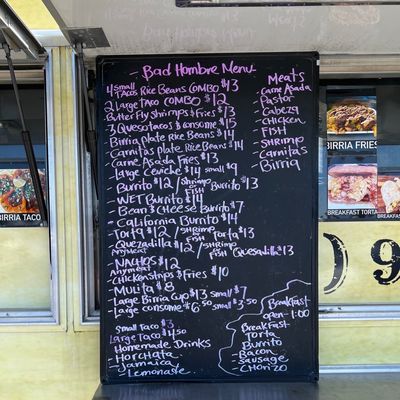 BREAKFAST
- Bad Hombre Menu -
4 small Tacos Rice Beans COMBO $13
2 large Taco COMBO $12
Butterfly Shrimps & Fries $13
3 Quesotacos & consume $15
Birria Plate Rice Beans $14
Carnitas Plate Rice Beans $14
Carne Asada Fries $13
Large Ceviche $14 small $9
- Burrito $12 / Shrimp or Fish Burrito $13
- WET Burrito $14
- Bean & Cheese Burrito $7
- California Burrito $14
- Torta $12 / Shrimp or Fish Torta $13
- Quezadilla $12 / Shrimp or Fish Quesadilla $13
Anymeat
- NACHOS $12
Anymeat
- Chicken Strips & Fries $10
- Mulita $8
- Large Birria Cup $13 Small $7
- Large consome $6.50 small $3.50
Small Taco $3
Large Taco $4.50
Homemade Drinks
- Horchata
- Jamaica
- Lemonade
Meats
- Carne Asada
- Pastor
- Cabeza
- Chicken
- Fish
- Shrimp
- Carnitas
- Birria
Breakfast
open - 1:00
Breakfast
Torta
Burrito
- Bacon
- Sausage
- Chorizo
BIRRIA TACO
BIRRIA FRIES
BREAKFAST
BREAKFAST TOR
) 9